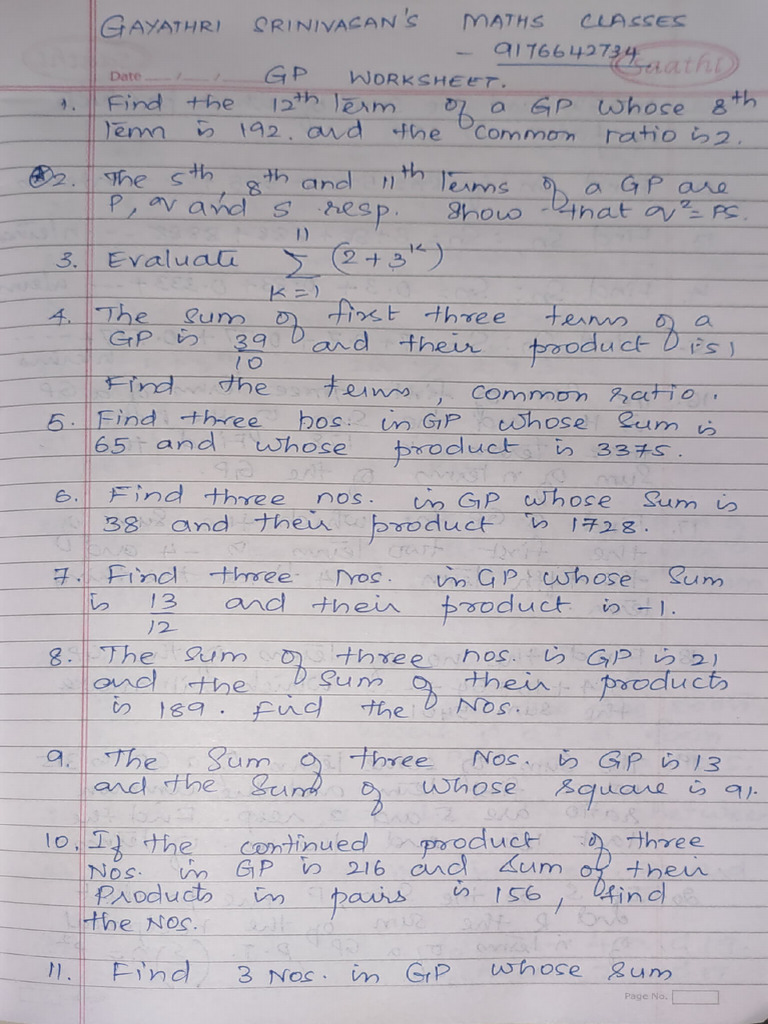 GAYATHRI SRINIVASAN'S MATHS CLASSES
- 9176642734
Saathi
Date __/__/__ GP WORKSHEET.
1. Find the 12th term of a GP whose 8th
term is 192. and the common ratio is 2.
2. The 5th, 8th and 11th terms of a GP are
P, q and s resp. Show that q² = PS.
11
3. Evaluate Σ (2 + 3^k)
K=1
4. The sum of first three terms of a
GP is 39/10 and their product is 1
Find the terms, common ratio.
5. Find three nos. in GP whose sum is
65 and whose product is 3375.
6. Find three nos. in GP whose sum is
38 and their product is 1728.
7. Find three Nos. in GP whose sum
is 13/12 and their product is -1.
8. The sum of three nos. is GP is 21
and the sum of their products
is 189. Find the Nos.
9. The sum of three Nos. is GP is 13
and the sum of whose square is 91.
10. If the continued product of three
Nos. in GP is 216 and sum of their
Products in pairs is 156, find
the Nos.
11. Find 3 Nos. in GP whose sum
Page No.